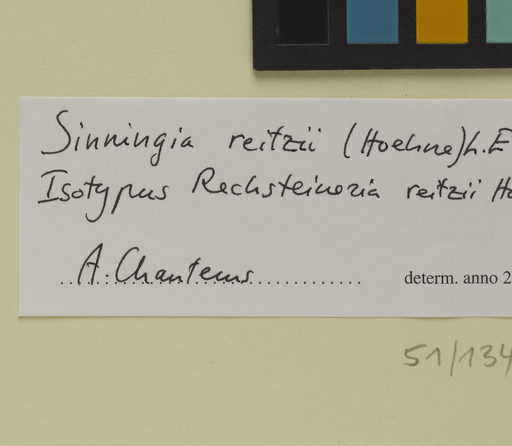 Sinningia reitzii (Hoehne) L.E
Isotypus Rechsteineria reitzii Ho
A. Chautems
determ. anno 2
51/134